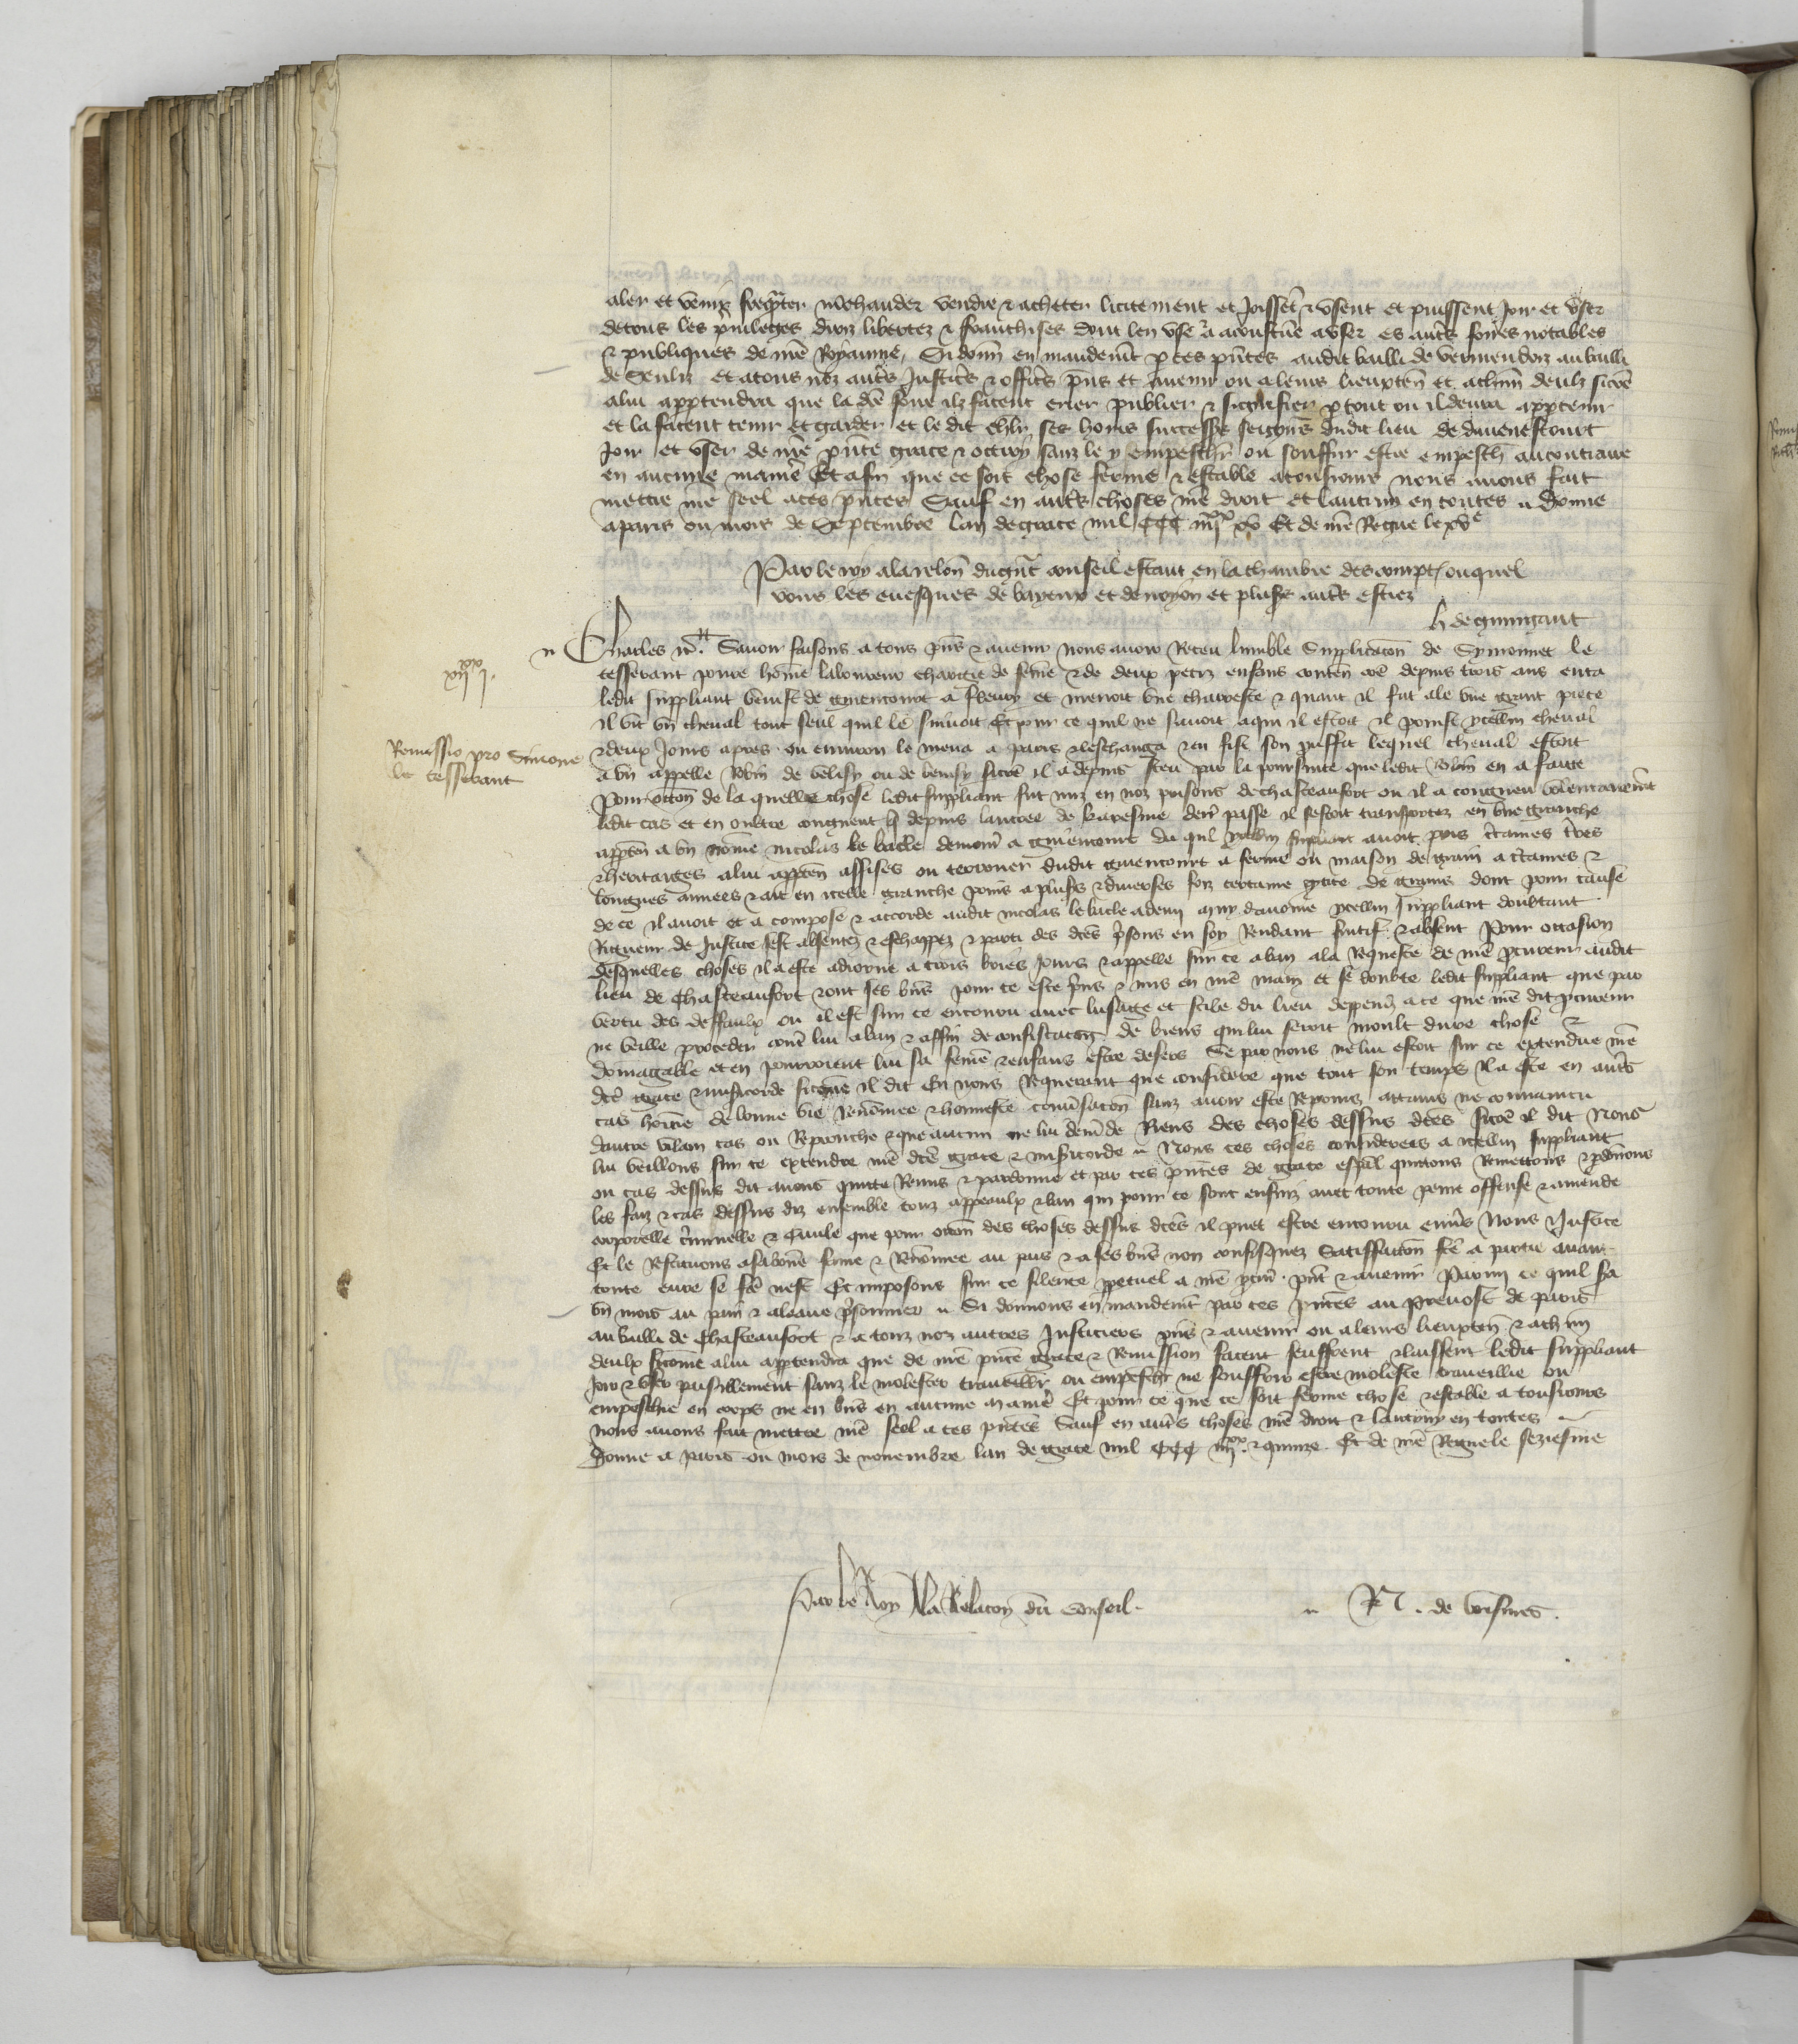 aler et venir frequēter mᵉchander vendre & acheter licitement et Joissēt & usent et puissent Joir et user
de tous les puileges droiz libertez & franchises dont len use & a acoustūe a user es autˢ foires notables
& publiques de nrē Royaume, Si donn̄ en mandemēt p ces pn̄tes audit bailli de vermendoiz au bailli
de Senliz et a tous noz autˢ Justicˢ & officˢ pn̄s et avenir ou a leurs lieuxten̄ et a chūn deulz sicōe
a lui apptendra que la dcē foire ilz facent crier publier & signifier p tout ou il devra apptenir
et la facent tenir et garder et le dit chlr ses hoirs successˢ seignrˢ dudit lieu de davenescourt
Joir et user de nrē pn̄te grace & ottroy sanz le y empeschr ou souffrir estre empesch au contraire
en aucune manieˢ Et afin que ce soit chose ferme & estable a tousiours nous avons fait
mettre nrē seel a ces pn̄tes Sauf en autˢ choses nrē droit et lautrui en toutes Donne
a paris ou mois de Septembre lan de grace mil CCC iiijˣˣ xv Et de nrē Regne le xvᵉ
Par le roy a la relon̄ du gn̄t conseil estant en la chambre des comptˢ ouquel
vous les evesques de bayeux et de noyon et plusˢ autˢ estiez
h de guingant
Charles &c. Savoir faisons a tous pn̄s & avenir nous avoir Receu lumble Supplicacōn de Symonnet le
tesserant povre hōme laboureur chargie de fēme & de deux petiz enfans conten̄ cōe depuis trois ans enca
ledit suppliant venist de guiencourt a et menoit une charreste & quant il fut ale une grant piece
il vit un cheval tout seul quil le suivoit Et pour ce quil ne savoit a qui il estoit il prinst ycellui cheval
& deux Jours apres ou environ le mena a paris & leschanga & en fist son prouffit lequel cheval estoit
a un appelle Robin de velisy ou de sicōe il a depuis sceu par la poursuite que ledit Robin en a faite
Pour occōn de la quelle chose ledit suppliant fut mis en noz prisons de chasteaufort ou il a congneu volentairemēt
ledit cas et en oultre congneut que depuis lantree de karesme dern̄ passe il sestoit transportez en une granche
apptēn a un nōme nicolas le bacle demour̄ a guiencourt du ql ycellui suppliant avoit pris c̄taines t̄res
& heritaiges a lui apptēn assises ou terrouer dudit guiencourt a ferme ou maison de grain a c̄taines &
longues annees & ait en icelle granche prins a plusˢ & diverses foiz certaine qtite de grains dont pour cause
de ce il avoit et a compose & accorde audit nicolas le bacle a demi muy davoine ycellui suppliant doubtant
Rigueur de Justice sest absentez & eschappez & parti des dcēs p̄sons en soy Rendant futif & absent Pour occasion
desquelles choses il a este adiorne a trois briefs Jours & appelle sur ce a ban a la Requeste de nrē pcureur audit
lieu de Chasteaufort & ont ses bn̄s pour ce este p̄ns & mis en nrē main et se doubte ledit suppliant que par
vertu des deffaulx ou il est sur ce encouru avec lusage et stile du lieu a ce que nrē dit pcureur
ne veille proceder cont̄ lui a ban & affin de confiscacōn de biens qui lui seroit moult dure chose &
domagable et en pourroient lui sa fēme & enfans estre desers Se par nous ne lui estoit sur ce extendue nrē
dcē grace & misericorde sicōme il dit En nous Requerant que considere que tout son temps il a este en autˢ
cas hōme de bonne vie renōmee & honneste conv̄sacōn sanz avoir este Reprins attains ne convaincu
dautre vilain cas ou Reprouche & que aucun ne lui dem̄de Riens des choses dessus dcēs sicōe il dit Nous
lui veillons sur ce extendre nrē dcē grace & misericorde Nous ces choses considerees a icellui suppliant
ou cas dessus dit avons quitte Remis & pardonne et par ces pn̄tes de grace esp̄al quittons Remettons & pdōnons
les faiz & cas dessus diz ensemble touz appeaulx & ban qui pour ce sont ensuiz avec toute peine offense & amende
corporelle c̄iminelle & Civile que pour occōn des choses dessus dcēs il puet estre encouru env̄s Nous & Justice
Et le Restituons a sa bonne fame & Renōmee au pais & a ses biēs non confisquez Satisfacōn fcē a partie avant
toute euvre se fcē nest Et imposons sur ce silence ppetuel a nrē pcur̄ pn̄t & avenir Parmi ce quil sera
un mois au pain & a leaue p̄sonnier Si donnons en mandemēt par ces pn̄tes au Prevost de Paris
au bailli de Chasteaufort & a touz noz autres Justiciers pn̄s & avenir ou a leurs lieuxten̄ & a chūn
deulx sicōme a lui apptendra que de nrē pn̄te grace & Remission facent seuffrent & laissent ledit suppliant
Joir & user paisiblement sanz le molester travaillir ou empeschr ne souffrir estre moleste traveillie ou
empeschie en corps ne en biēs en aucune manieˢ Et pour ce que ce soit ferme chose & estable a tousiours
nous avons fait mettre nrē seel a ces pn̄tes Sauf en autˢ choses nrē droit & lautruy en toutes
Donne a Paris ou mois de novembre lan de grace mil CCC iiijˣˣ & quinze Et de nrē Regne le seziesme
Par le Roy A la Relacōn du Conseil. N. de voisines.
xiiˣˣ j.
Remissio pro Simone
le tesserant